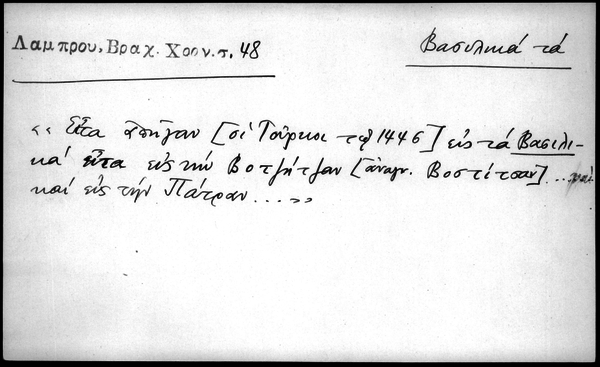 Λαμπρου, Βραχ. Χρον. τ. 48
Βασιλικά τά
«Εἶτα ὑπῆγαν [οἱ Τοῦρκοι τῷ 1446] εἰς τά Βασιλι-
κά εἶτα εἰς τήν Βοτζήτζαν [ἀναγν. Βοστίτσαν]... καί
καί εἰς τήν Πάτραν...»